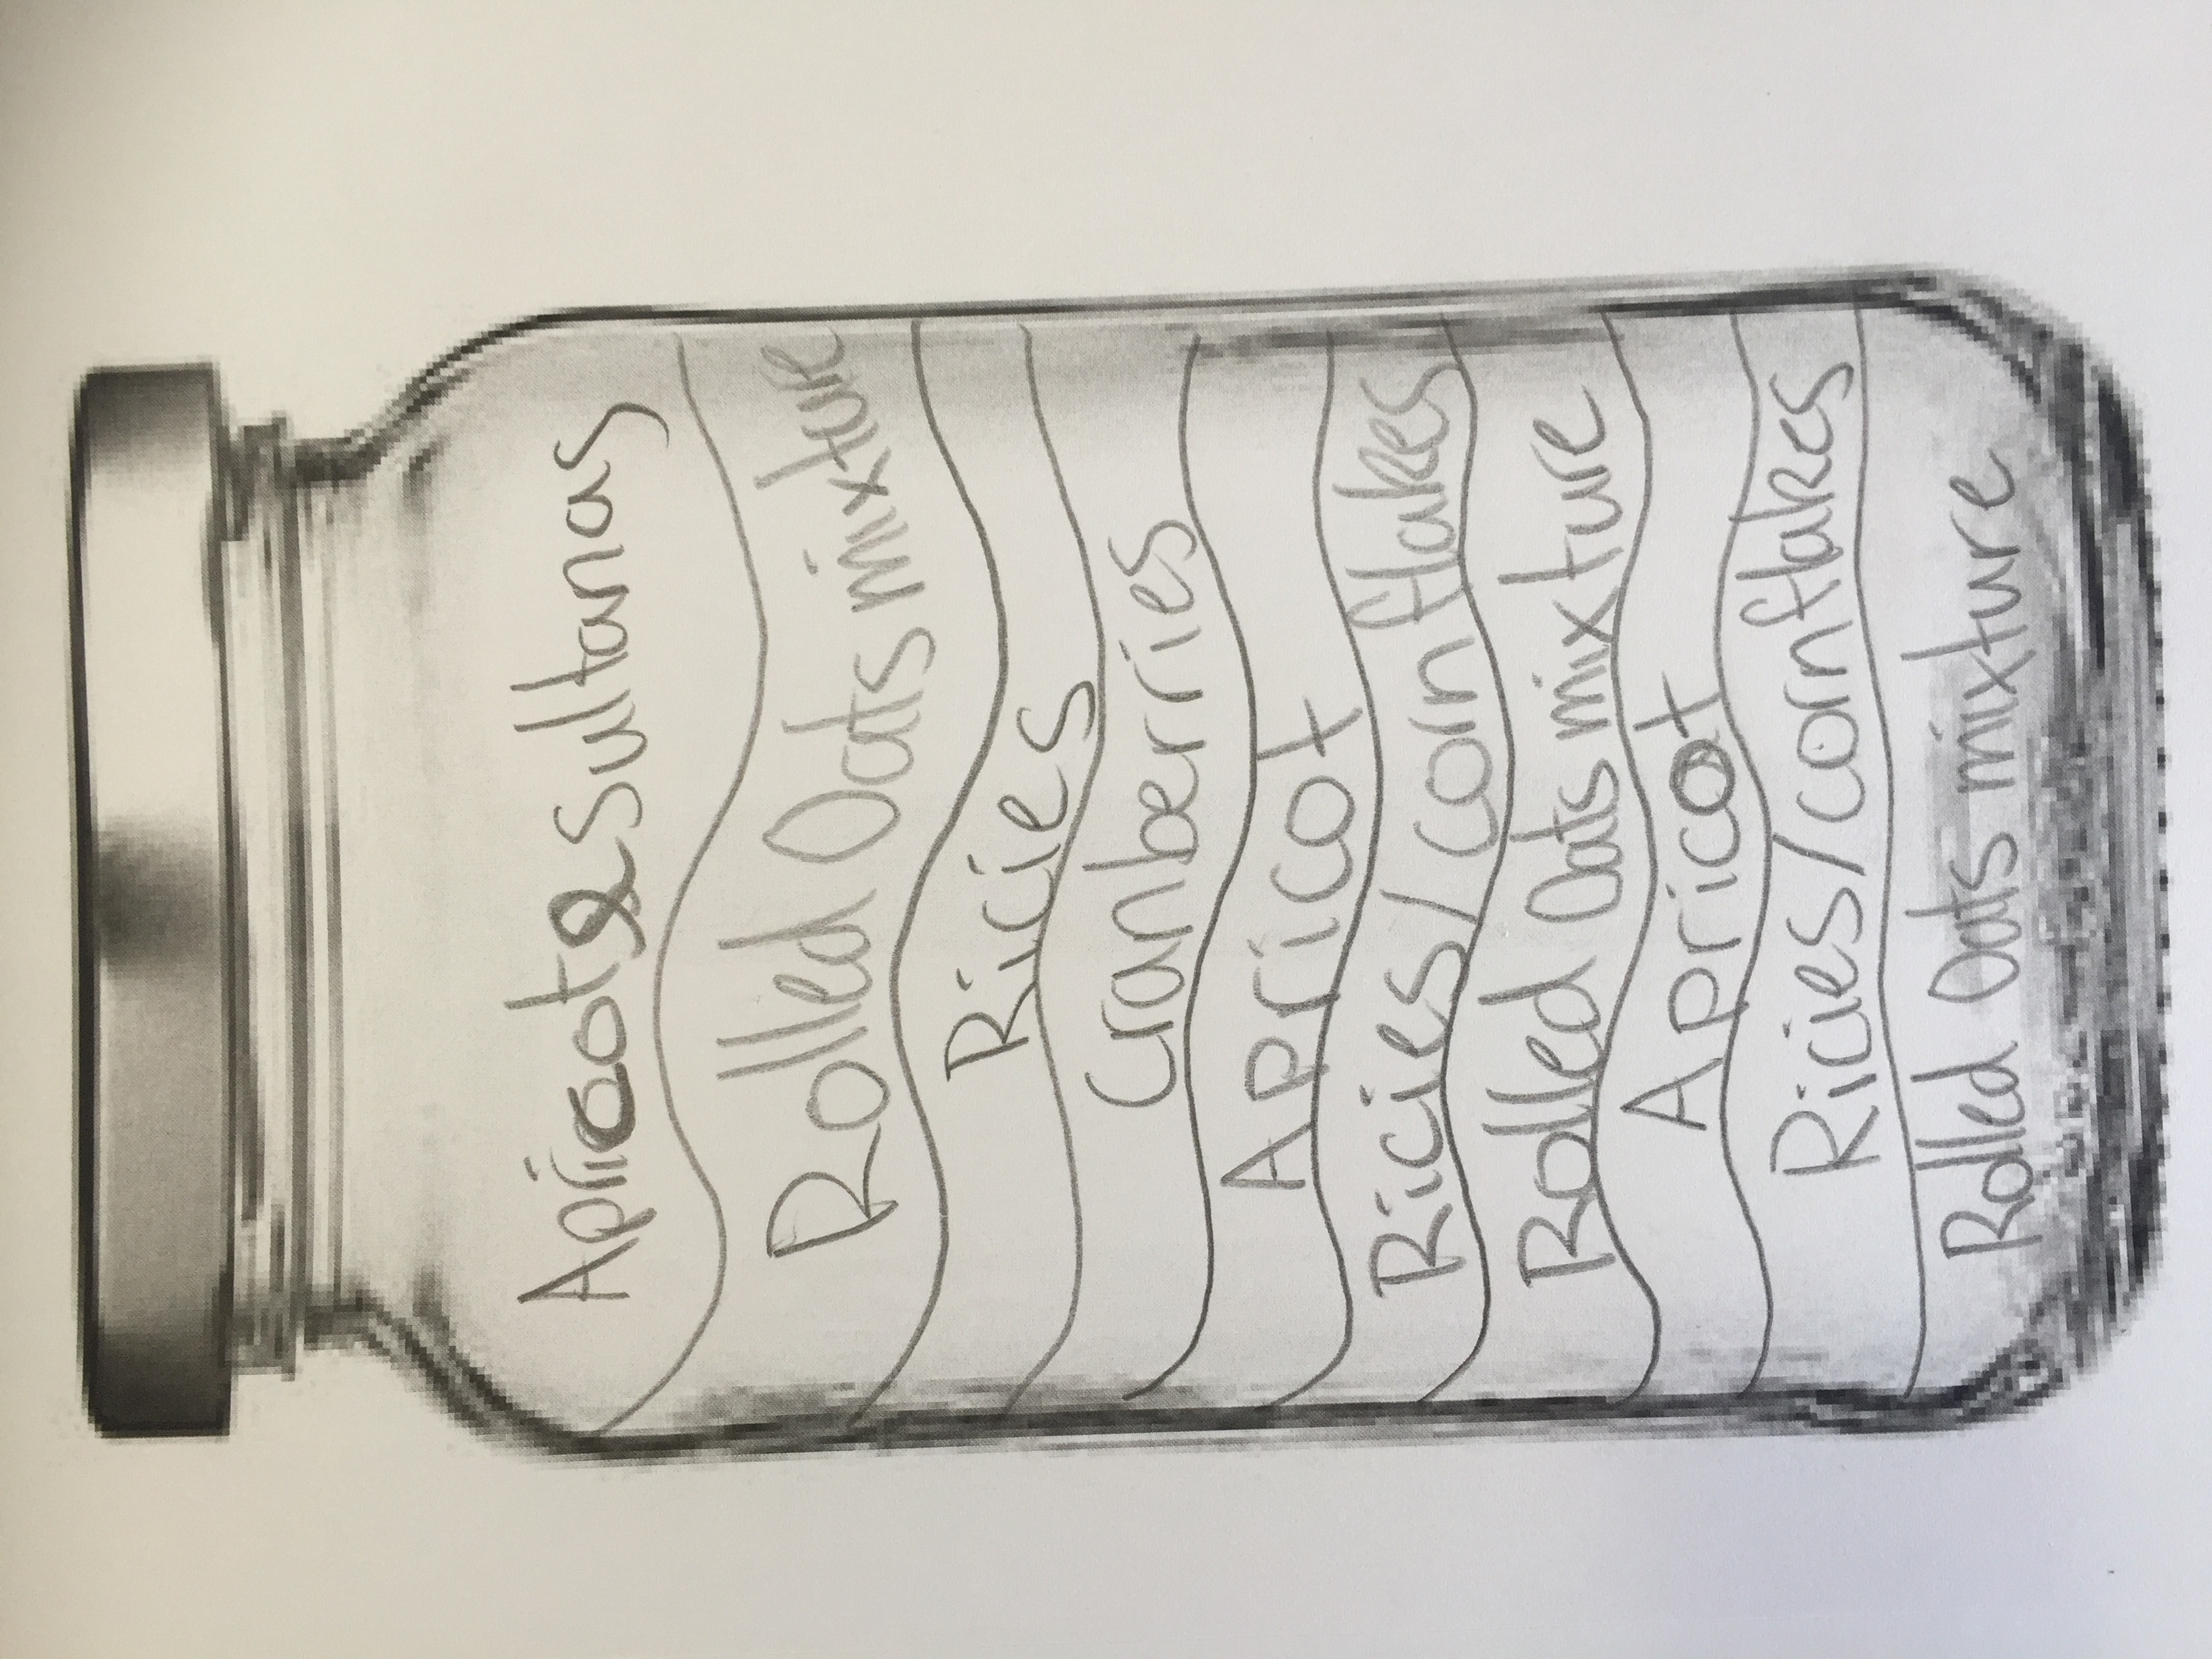 Apricot & Sultanas
Rolled Oats mixture
Ricies
Cranberries
Apricot
Ricies/corn flakes
Rolled Oats mixture
Apricot
Ricies/corn flakes
Rolled Oats mixture